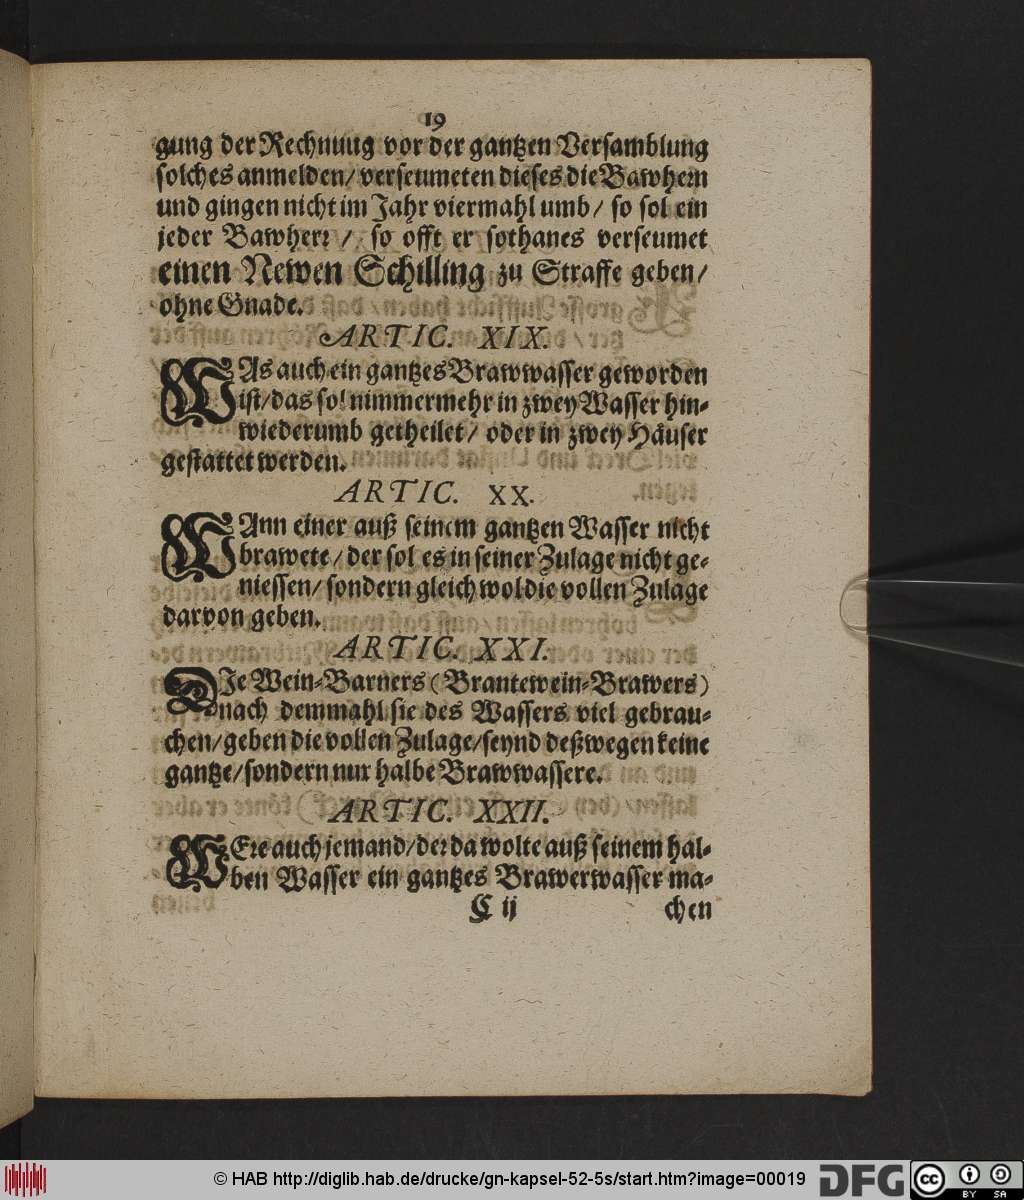 19
gung der Rechnung vor der gantzen Versamblung
solches anmelden/ verseumeten dieses die Bawhern
und gingen nicht im Jahr viermahl umb/ so sol ein
jeder Bawherr/ so offt er sothanes verseumet
einen Newen Schilling zu Straffe geben/
ohne Gnade.
ARTIC. XIX.
WAs auch ein gantzes Brawwasser geworden
ist/ das sol nimmermehr in zwey Wasser hin-
wiederumb getheilet/ oder in zwey Häuser
gestattet werden.
ARTIC. XX.
WAnn einer auß seinem gantzen Wasser nicht
brawete/ der sol es in seiner Zulage nicht ge-
niessen/ sondern gleichwol die vollen Zulage
darvon geben.
ARTIC. XXI.
DIe Wein-Barners (Brantewein-Brawers)
nach demmahl sie des Wassers viel gebrau-
chen/ geben die vollen Zulage/ seynd deßwegen keine
gantze/ sondern nur halbe Brawwassere.
ARTIC. XXII.
WEre auch jemand/ der da wolte auß seinem hal-
ben Wasser ein gantzes Brawerwasser ma-
C ij chen
© HAB http://diglib.hab.de/drucke/gn-kapsel-52-5s/start.htm?image=00019 DFG cc BY SA